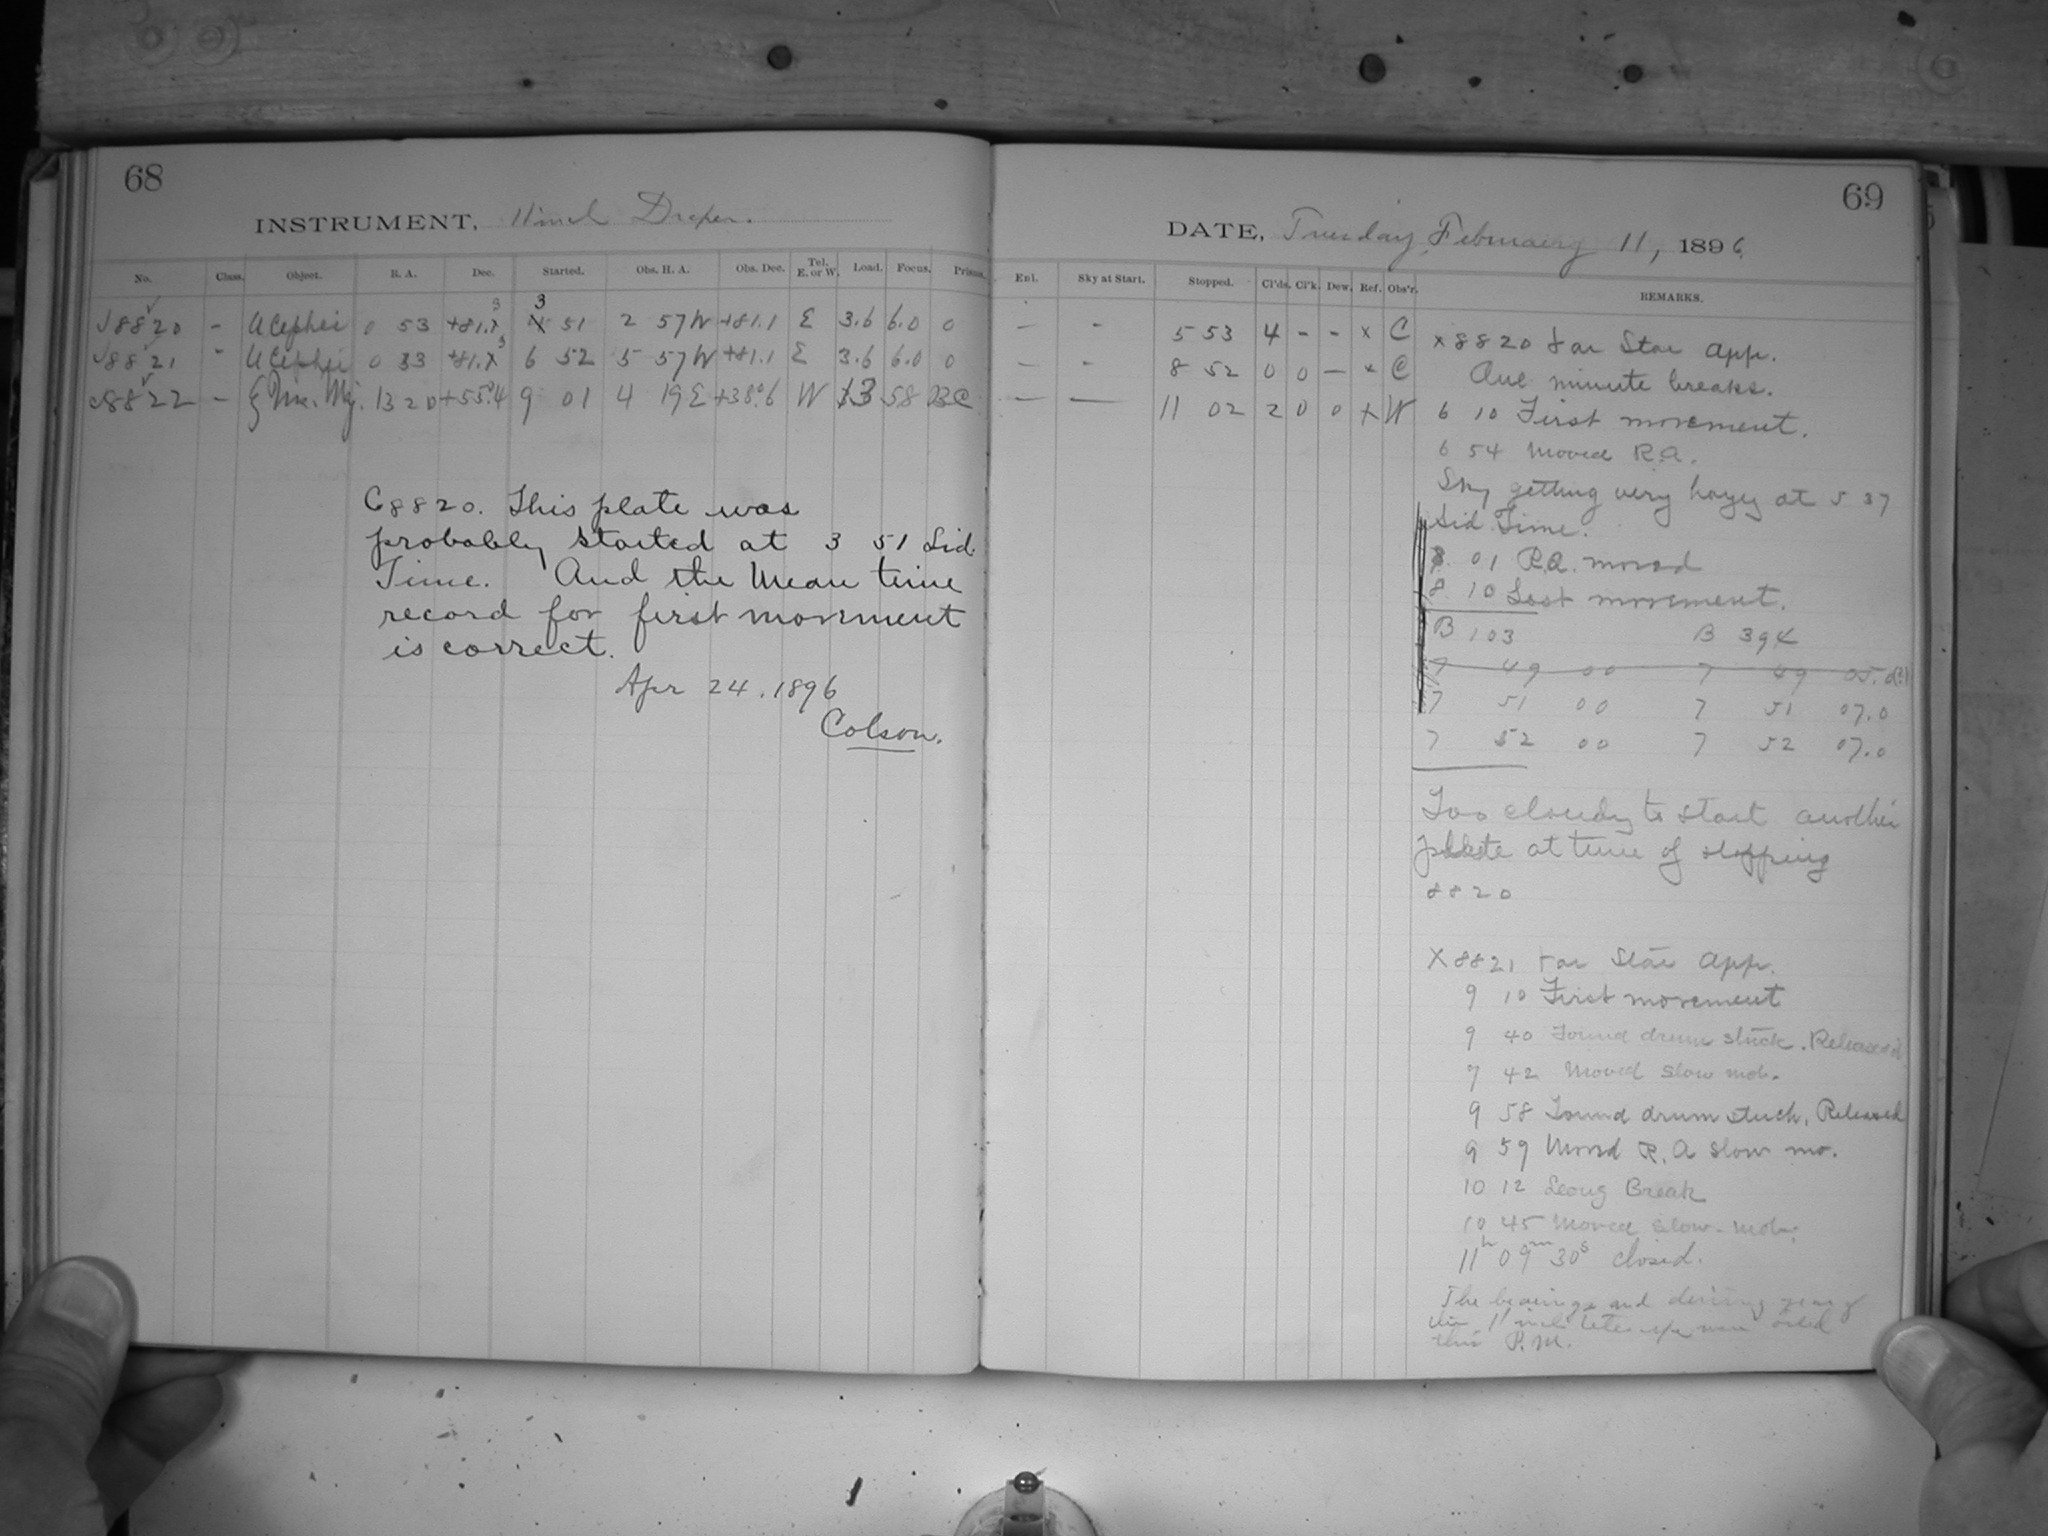 68
INSTRUMENT, 11 inch Draper.
No. Class. Object. R. A. Dec. Started. Obs. H. A. Obs. Dec. Tel. E. or W. Load. Focus. Prisms.
8820 - U Cephei 0 53 +81. 3 51 2 57 W +81.1 E 3.6 6.0 0
8821 " U Cephei 0 53 +81. 6 52 5 57 W +81.1 E 3.6 6.0 0
8822 - ζ Urs. Maj. 13 20 +55.4 9 01 4 19 E +38.6 W 13 58 BC
C8820. This plate was
probably started at 3 51 Sid.
Time. And the Mean time
record for first movement
is correct.
Apr 24. 1896
Colson.
69
DATE, Tuesday, February 11, 1896
Enl. Sky at Start. Stopped. Cl'ds. Cl'k. Dew. Ref. Obs'r. REMARKS.
— - 5 53 4 - - x C
— - 8 52 0 0 — x C
— — 11 02 2 0 0 x W
x 8820 Var Star App.
One minute breaks.
6 10 First movement.
6 54 Moved R.A.
Sky getting very hazy at 5 37
Sid. Time.
8 01 R.A. moved
8 10 Last movement.
B 103 B 394
7 49 00 7 49 05.
7 51 00 7 51 07.0
7 52 00 7 52 07.0
Too cloudy to start another
plate at time of stopping
8820
X 8821 Var Star App.
9 10 First movement
9 40 Found drum stuck. Released
9 42 Moved slow mot.
9 58 Found drum stuck. Released
9 59 Moved R.A slow mo.
10 12 Long Break
10 45 Moved slow-mot.
11h 09m 30s closed.
The bearings and driving gear of
the 11 inch telescope were oiled
this P.M.